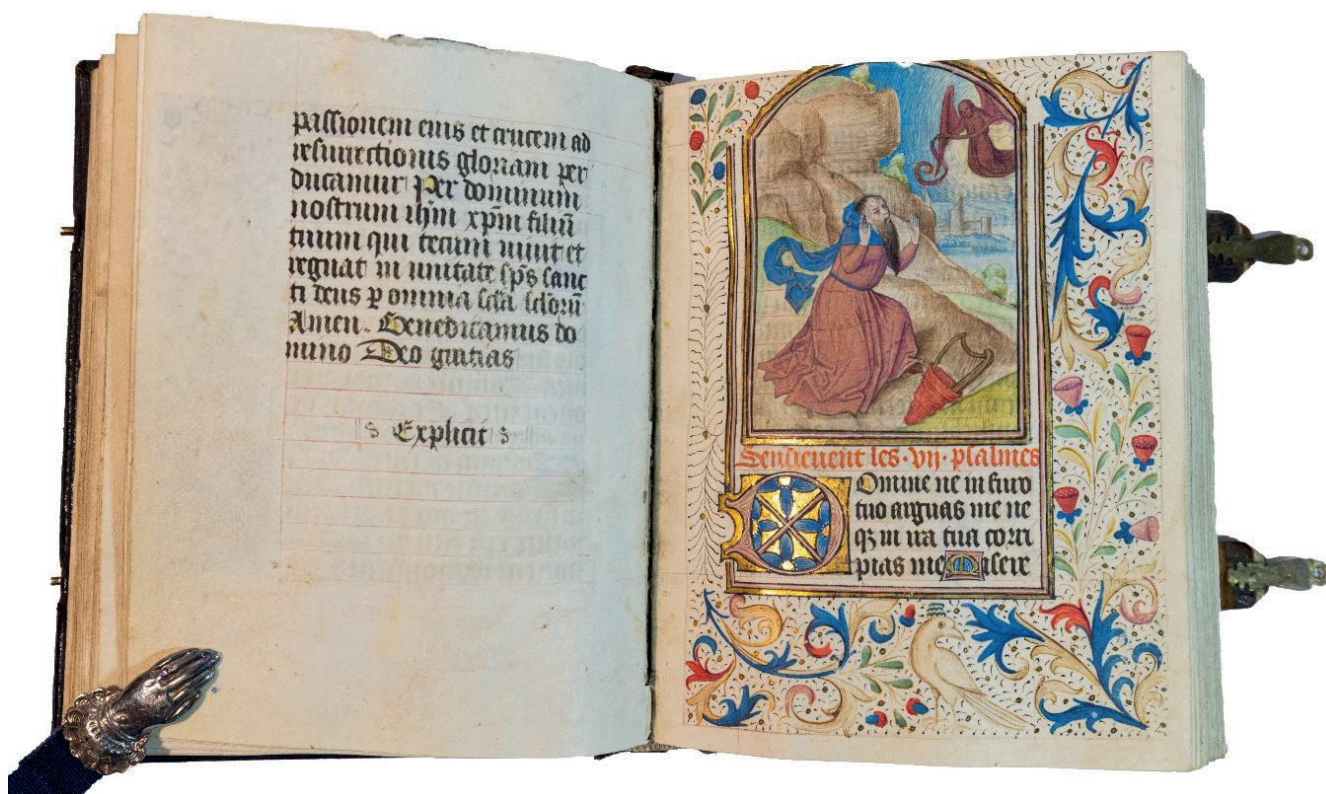 passionem eius et crucem ad
resurrectionis gloriam per
ducamur Per dominum
nostrum ihm xpm filiū
tuum qui tecum uiuit et
regnat in unitate sps sanc
ti deus p omnia scla sclorū
Amen. Benedicamus do
mino Deo gratias
Explicit
Sensieuent les .vij. psalmes
Domine ne in furo
tuo arguas me ne
qz in ira tua corri
pias me Misere